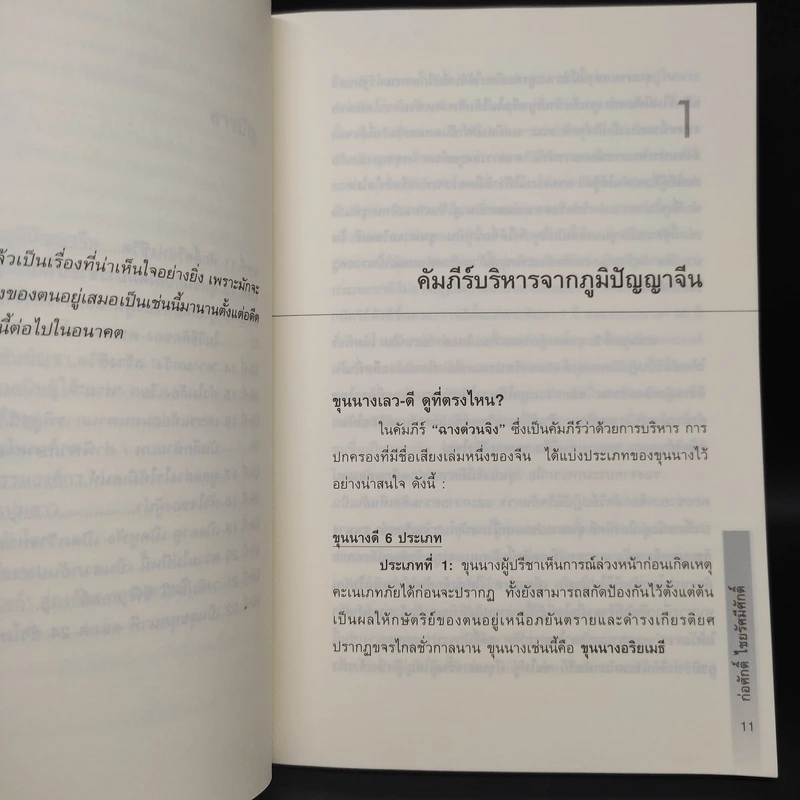 ล้วเป็นเรื่องที่น่าเห็นใจอย่างยิ่ง เพราะมักจะ
ของตนอยู่เสมอเป็นเช่นนี้มานานตั้งแต่อดีต
นี้ต่อไปในอนาคต
1
คัมภีร์บริหารจากภูมิปัญญาจีน
ขุนนางเลว-ดี ดูที่ตรงไหน?
ในคัมภีร์ “ฉางต่วนจิง” ซึ่งเป็นคัมภีร์ว่าด้วยการบริหาร การ
ปกครองที่มีชื่อเสียงเล่มหนึ่งของจีน ได้แบ่งประเภทของขุนนางไว้
อย่างน่าสนใจ ดังนี้ :
ขุนนางดี 6 ประเภท
ประเภทที่ 1: ขุนนางผู้ปรีชาเห็นการณ์ล่วงหน้าก่อนเกิดเหตุ
คะเนเภทภัยได้ก่อนจะปรากฏ ทั้งยังสามารถสกัดป้องกันไว้ตั้งแต่ต้น
เป็นผลให้กษัตริย์ของตนอยู่เหนือภยันตรายและดำรงเกียรติยศ
ปรากฏขจรไกลชั่วกาลนาน ขุนนางเช่นนี้คือ ขุนนางอริยเมธี
ก่อศักดิ์ ไชยรัศมีศักดิ์
11